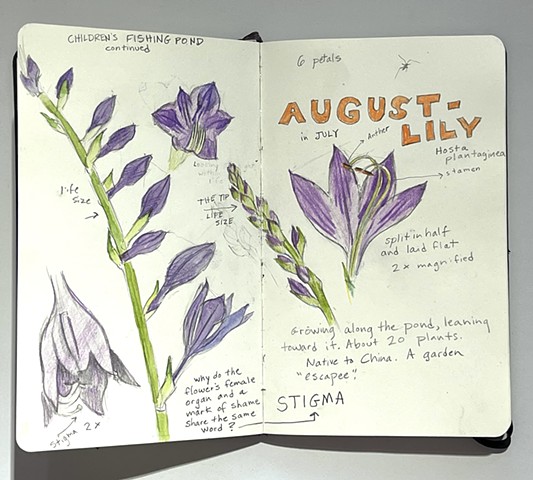 CHILDREN'S FISHING POND
continued
life
size
THE TIP
LIFE
SIZE
stigma 2x
why do the
flower's female
organ and a
mark of shame
share the same
word?
6 petals
AUGUST-
LILY
in JULY
Anther
Hosta
plantaginea
stamen
split in half
and laid flat
2x magnified
Growing along the pond, leaning
toward it. About 20 plants.
Native to China. A garden
"escapee".
STIGMA